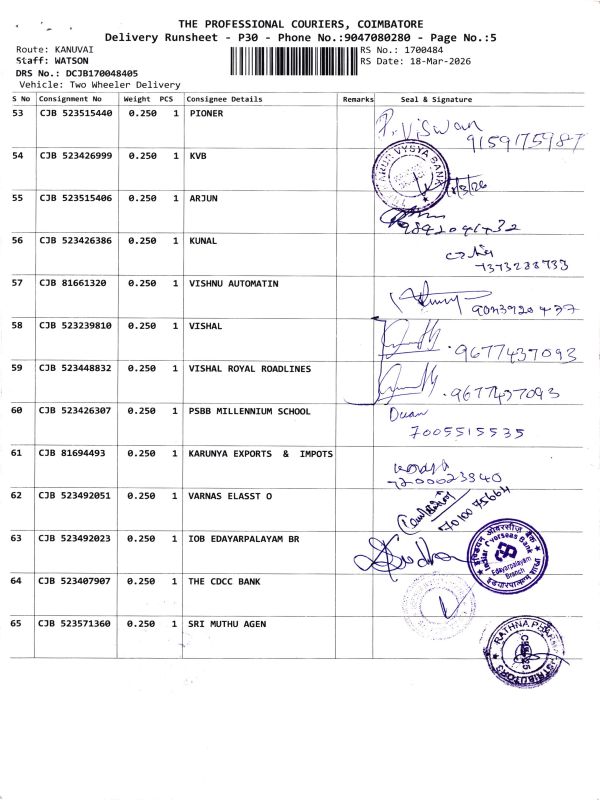 THE PROFESSIONAL COURIERS, COIMBATORE
Delivery Runsheet - P30 - Phone No.:9047080280 - Page No.:5
Route: KANUVAI RS No.: 1700484
Staff: WATSON RS Date: 18-Mar-2026
DRS No.: DCJB170048405
Vehicle: Two Wheeler Delivery
S No Consignment No Weight PCS Consignee Details Remarks Seal & Signature
53 CJB 523515440 0.250 1 PIONER P. Viswan
9159175987
54 CJB 523426999 0.250 1 KVB
55 CJB 523515406 0.250 1 ARJUN
56 CJB 523426386 0.250 1 KUNAL
7373288733
57 CJB 81661320 0.250 1 VISHNU AUTOMATIN
58 CJB 523239810 0.250 1 VISHAL
9677437093
59 CJB 523448832 0.250 1 VISHAL ROYAL ROADLINES
9677437093
60 CJB 523426307 0.250 1 PSBB MILLENNIUM SCHOOL
7005515535
61 CJB 81694493 0.250 1 KARUNYA EXPORTS & IMPOTS
7200023840
62 CJB 523492051 0.250 1 VARNAS ELASST O
63 CJB 523492023 0.250 1 IOB EDAYARPALAYAM BR
इण्डियन ओवरसीज़ बैंक
Indian Overseas Bank
Edayarpalayam
Branch
64 CJB 523407907 0.250 1 THE CDCC BANK
65 CJB 523571360 0.250 1 SRI MUTHU AGEN
RATHNA PHARMA
DISTRIBUTORS